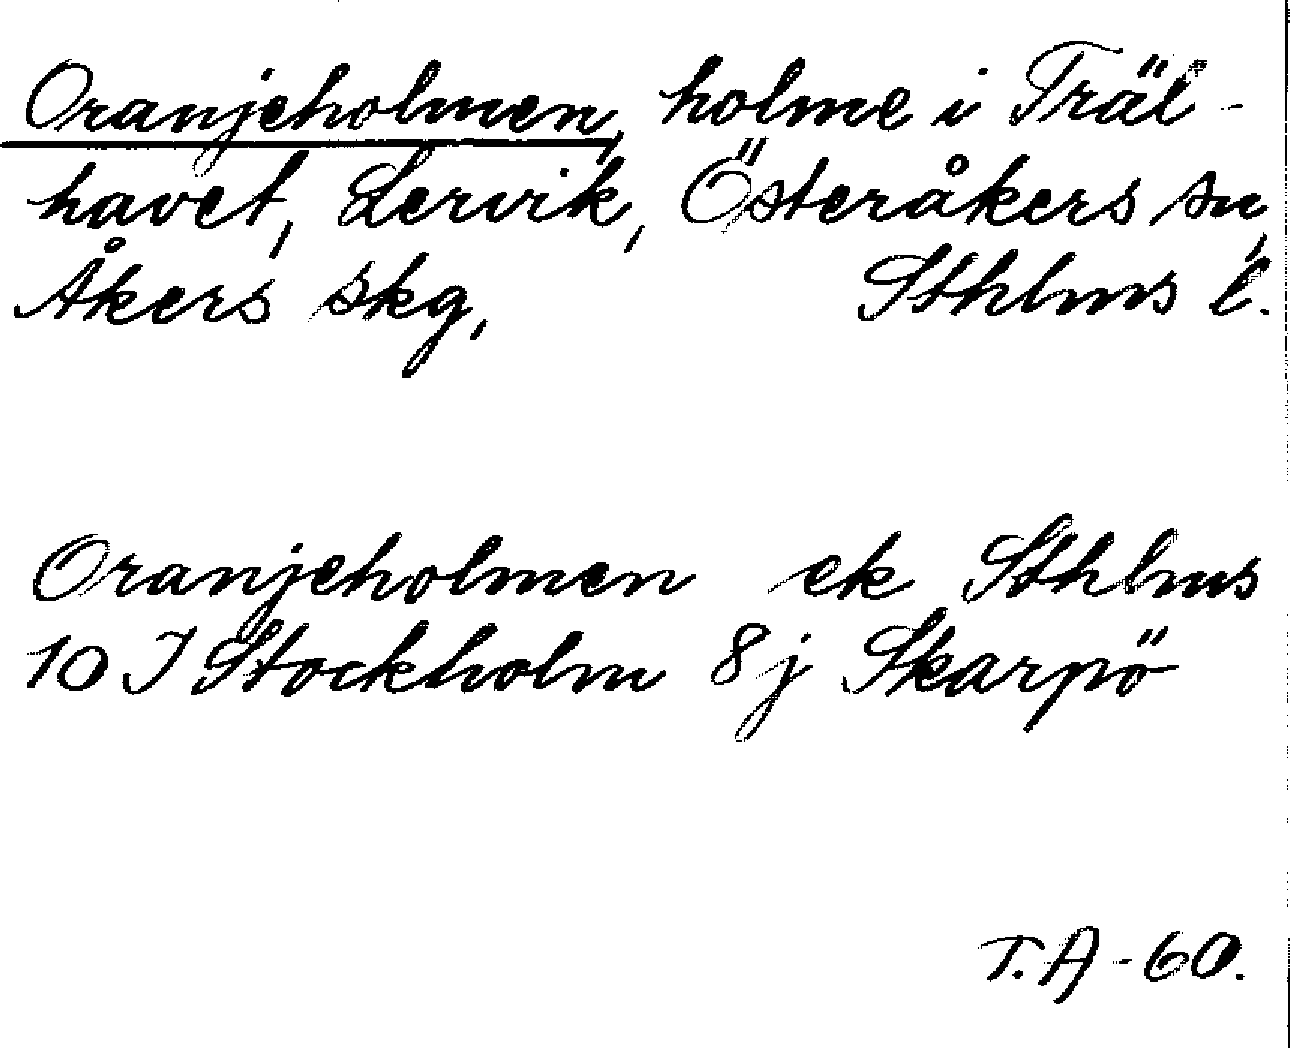 Oranjeholmen, holme i Träl-
havet, Lervik, Österåkers sn,
Åkers skg, Sthlms l.
Oranjeholmen ek Sthlms
10 I Stockholm 8j Skarpö
T.A-60.